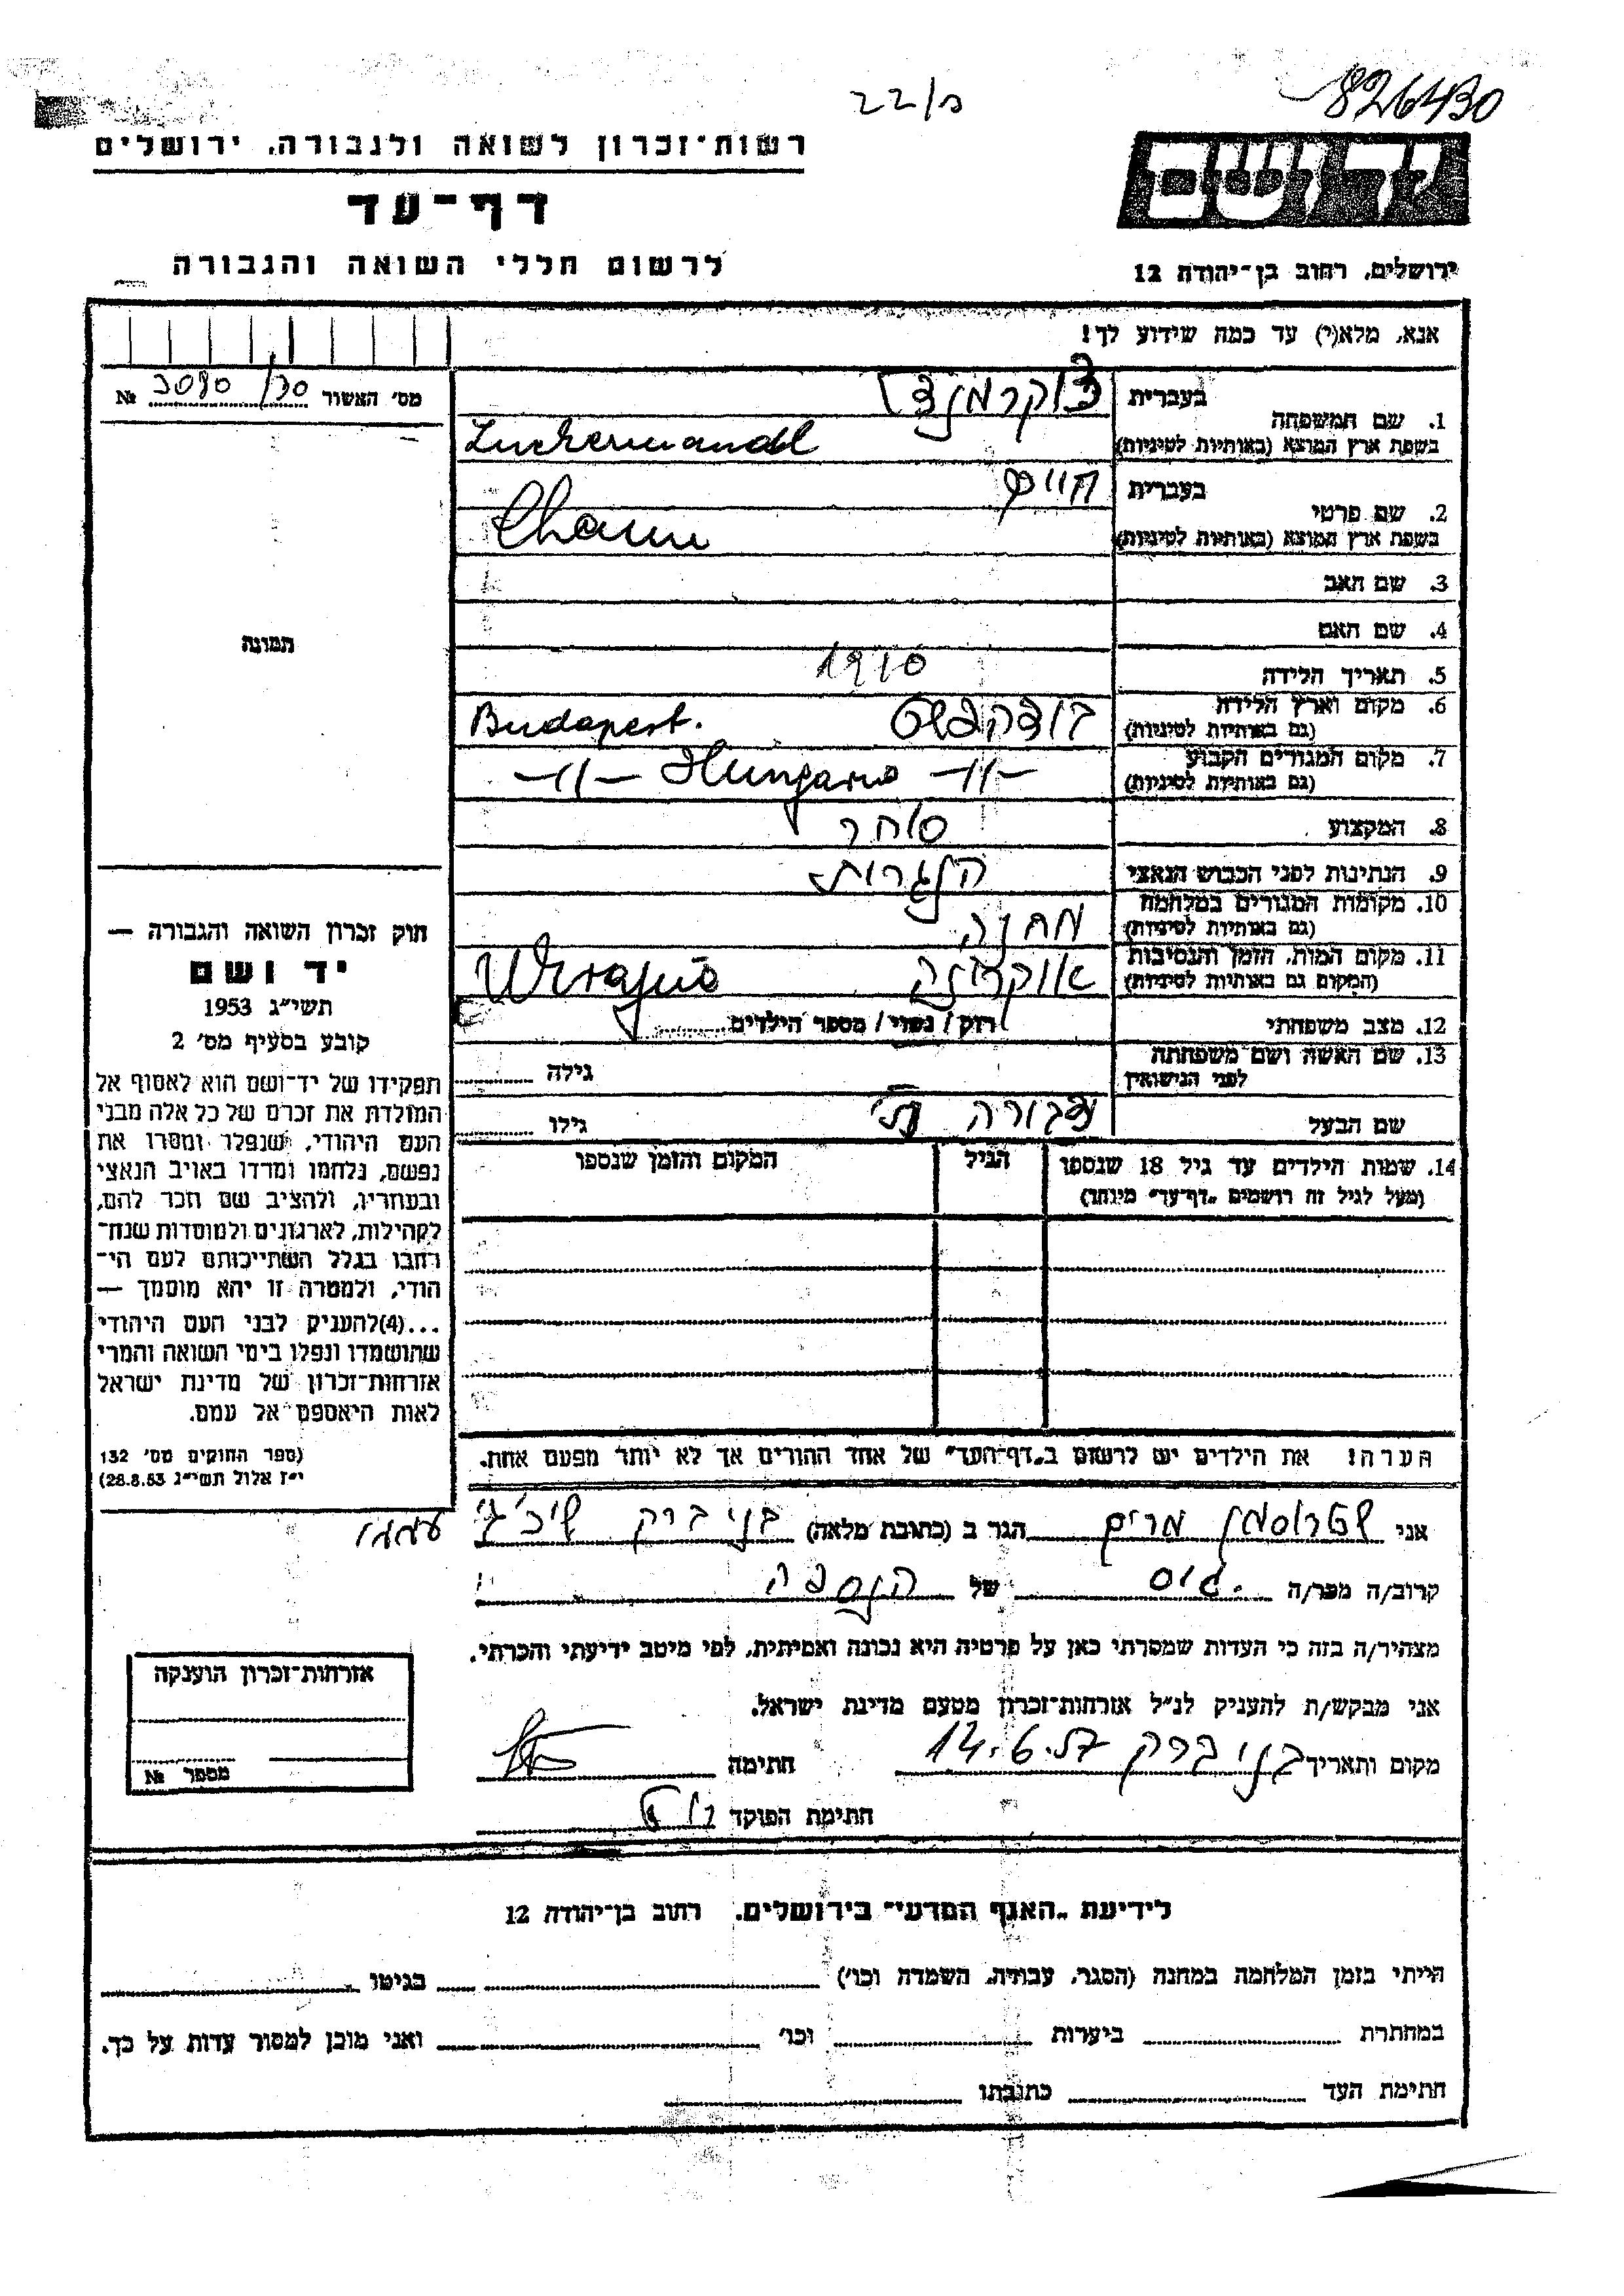 22/ס
826430
רשות־זכרון לשואה ולגבורה, ירושלים
יד ושם
דף־עד
לרשום חללי השואה והגבורה
ירושלים, רחוב בן־יהודה 12
אנא, מלא(י) עד כמה שידוע לך!
מס׳ האשור №
1. שם המשפחה בעברית צוקרמנדל
בשפת ארץ המוצא (באותיות לטיניות) Zuckermandl
2. שם פרטי בעברית חיים
בשפת ארץ המוצא (באותיות לטיניות) Chaim
3. שם האב
4. שם האם
5. תאריך הלידה 1910
6. מקום וארץ הלידה (גם באותיות לטיניות) בודפשט Budapest.
7. מקום המגורים הקבוע (גם באותיות לטיניות) -11- Hungaria -11-
8. המקצוע סוחר
9. הנתינות לפני הכבוש הנאצי הונגרית
10. מקומות המגורים במלחמה (גם באותיות לטיניות) מחנה
11. מקום המות, הזמן והנסיבות (המקום גם באותיות לטיניות) אוקרינה Ukrajna
12. מצב משפחתי רווק / נשוי / מספר הילדים
13. שם האשה ושם משפחתה לפני הנישואין גילה
שם הבעל גילו
14. שמות הילדים עד גיל 18 שנספו
(מעל לגיל זה רושמים „דף־עד" מיוחד)
הגיל
המקום והזמן שנספו
הערה! את הילדים יש לרשום ב„דף־העד" של אחד ההורים אך לא יותר מפעם אחת.
תמונה
חוק זכרון השואה והגבורה —
יד ושם
תשי"ג 1953
קובע בסעיף מס׳ 2
תפקידו של יד־ושם הוא לאסוף אל
המולדת את זכרם של כל אלה מבני
העם היהודי, שנפלו ומסרו את
נפשם, נלחמו ומרדו באויב הנאצי
ובעוזריו, ולהציב שם וזכר להם,
לקהילות, לארגונים ולמוסדות שנח־
רבו בגלל השתייכותם לעם הי־
הודי, ולמטרה זו יהא מוסמך —
...(4) להעניק לבני העם היהודי
שהושמדו ונפלו בימי השואה והמרי
אזרחות־זכרון של מדינת ישראל
לאות היאספם אל עמם.
(ספר החוקים מס׳ 132
י"ז אלול תשי"ג 28.8.53)
אני שטרוסמן מרים הגר ב (כתובת מלאה) בני ברק
קרוב/ה מכר/ה גיס של הנספה
מצהיר/ה בזה כי העדות שמסרתי כאן על פרטיה היא נכונה ואמיתית, לפי מיטב ידיעתי והכרתי.
אני מבקש/ת להעניק לנ"ל אזרחות־זכרון מטעם מדינת ישראל.
מקום ותאריך בני ברק 14.6.57 חתימה
חתימת הפוקד
אזרחות־זכרון הוענקה
מספר №
לידיעת „האגף המדעי" בירושלים, רחוב בן־יהודה 12
הייתי בזמן המלחמה במחנה (הסגר, עבודה, השמדה וכו׳) בגיטו
במחתרת ביערות וכו׳ ואני מוכן למסור עדות על כך.
חתימת העד כתובתו